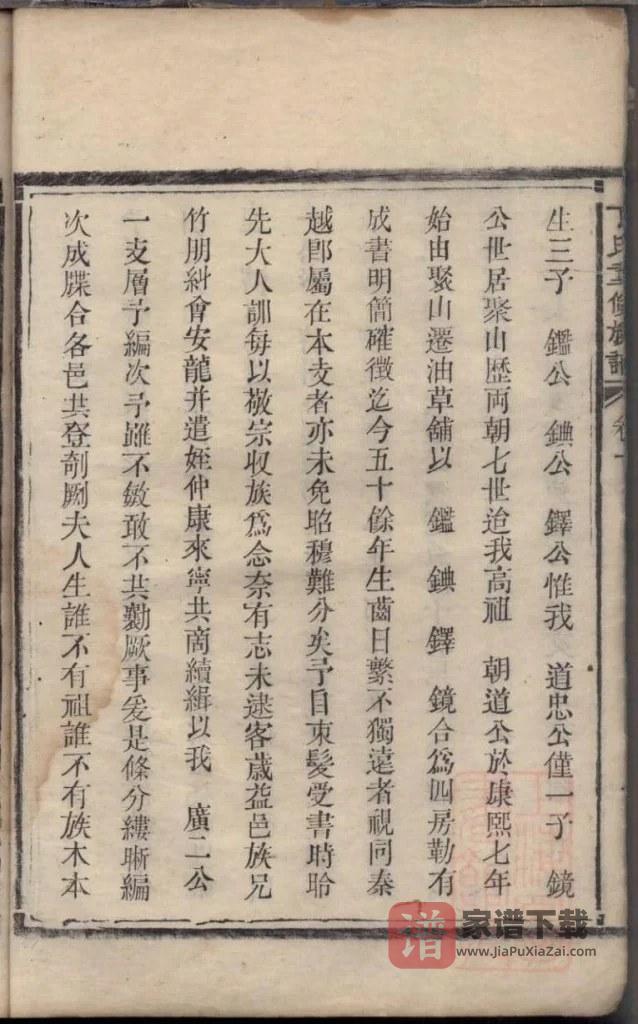 氏重修族譜
卷一
生三子　鑑公　錪公　鐸公惟我　道忠公僅一子　鏡
公世居聚山歷両朝七世迨我高祖　朝道公於康熙七年
始由聚山遷油草舖以　鑑　錪　鐸　鏡合爲四房勒有
成書明簡確徵迄今五十餘年生齒日繁不獨遠者視同秦
越卽屬在本支者亦未免昭穆難分矣予自束髮受書時聆
先大人訓每以敬宗収族爲念奈有志未逮客歲益邑族兄
竹朋糾會安龍并遣姪仲康來寧共商續緝以我　廣二公
一支層予編次予雖不敏敢不共勷厥事爰是條分縷晰編
次成牒合各邑共登剞劂夫人生誰不有祖誰不有族木本
譜
家谱下载
www.JiaPuXiaZai.com